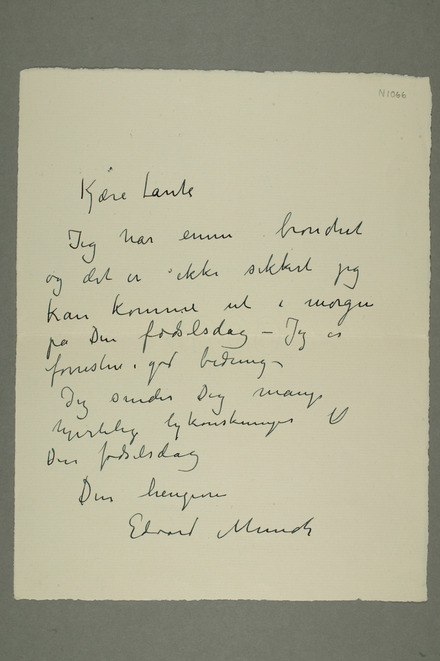 N1066
Kjære Tante
Jeg har ennu bronchit
og det er ikke sikkert jeg
kan komme ut i morgen
på Din fødselsdag – Jeg er
forresten i god bedring –
Jeg sender Dig mange
hjertelige lykønskninger til
Din fødselsdag
Din hengivne
Edvard Munch